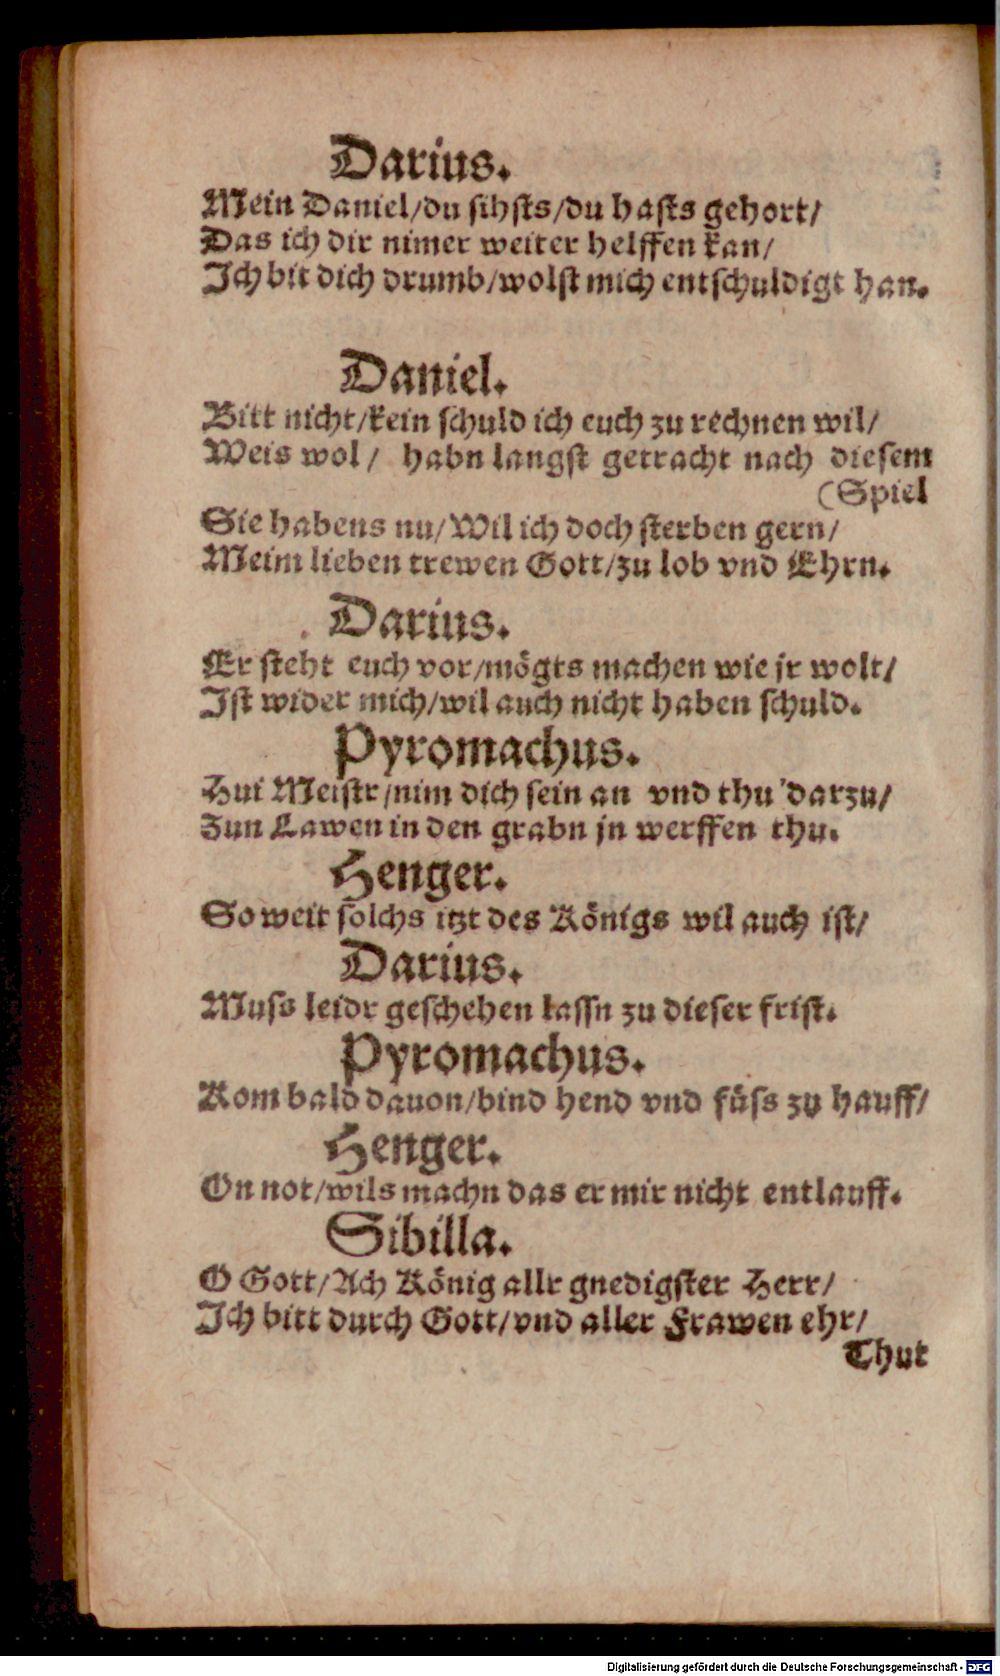 Darius.
Mein Daniel/du sihsts/du hasts gehort/
Das ich dir nimer weiter helffen kan/
Ich bit dich drumb/wolst mich entschuldigt han.
Daniel.
Bitt nicht/kein schuld ich euch zu rechnen wil/
Weis wol/ habn langst getracht nach diesem
(Spiel
Sie habens nu/Wil ich doch sterben gern/
Meim lieben trewen Gott/zu lob vnd Ehrn.
Darius.
Er steht euch vor/mögts machen wie jr wolt/
Ist wider mich/wil auch nicht haben schuld.
Pyromachus.
Hui Meistr/nim dich sein an vnd thu darzu/
Zun Lawen in den grabn jn werffen thu.
Henger.
So weit solchs itzt des Königs wil auch ist/
Darius.
Muss leidr geschehen lassn zu dieser frist.
Pyromachus.
Kom bald dauon/bind hend vnd füss zu hauff/
Henger.
On not/wils machn das er mir nicht entlauff.
Sibilla.
O Gott/Ach König allr gnedigster Herr/
Ich bitt durch Gott/vnd aller Frawen ehr/
Thut
Digitalisierung gefördert durch die Deutsche Forschungsgemeinschaft - DFG